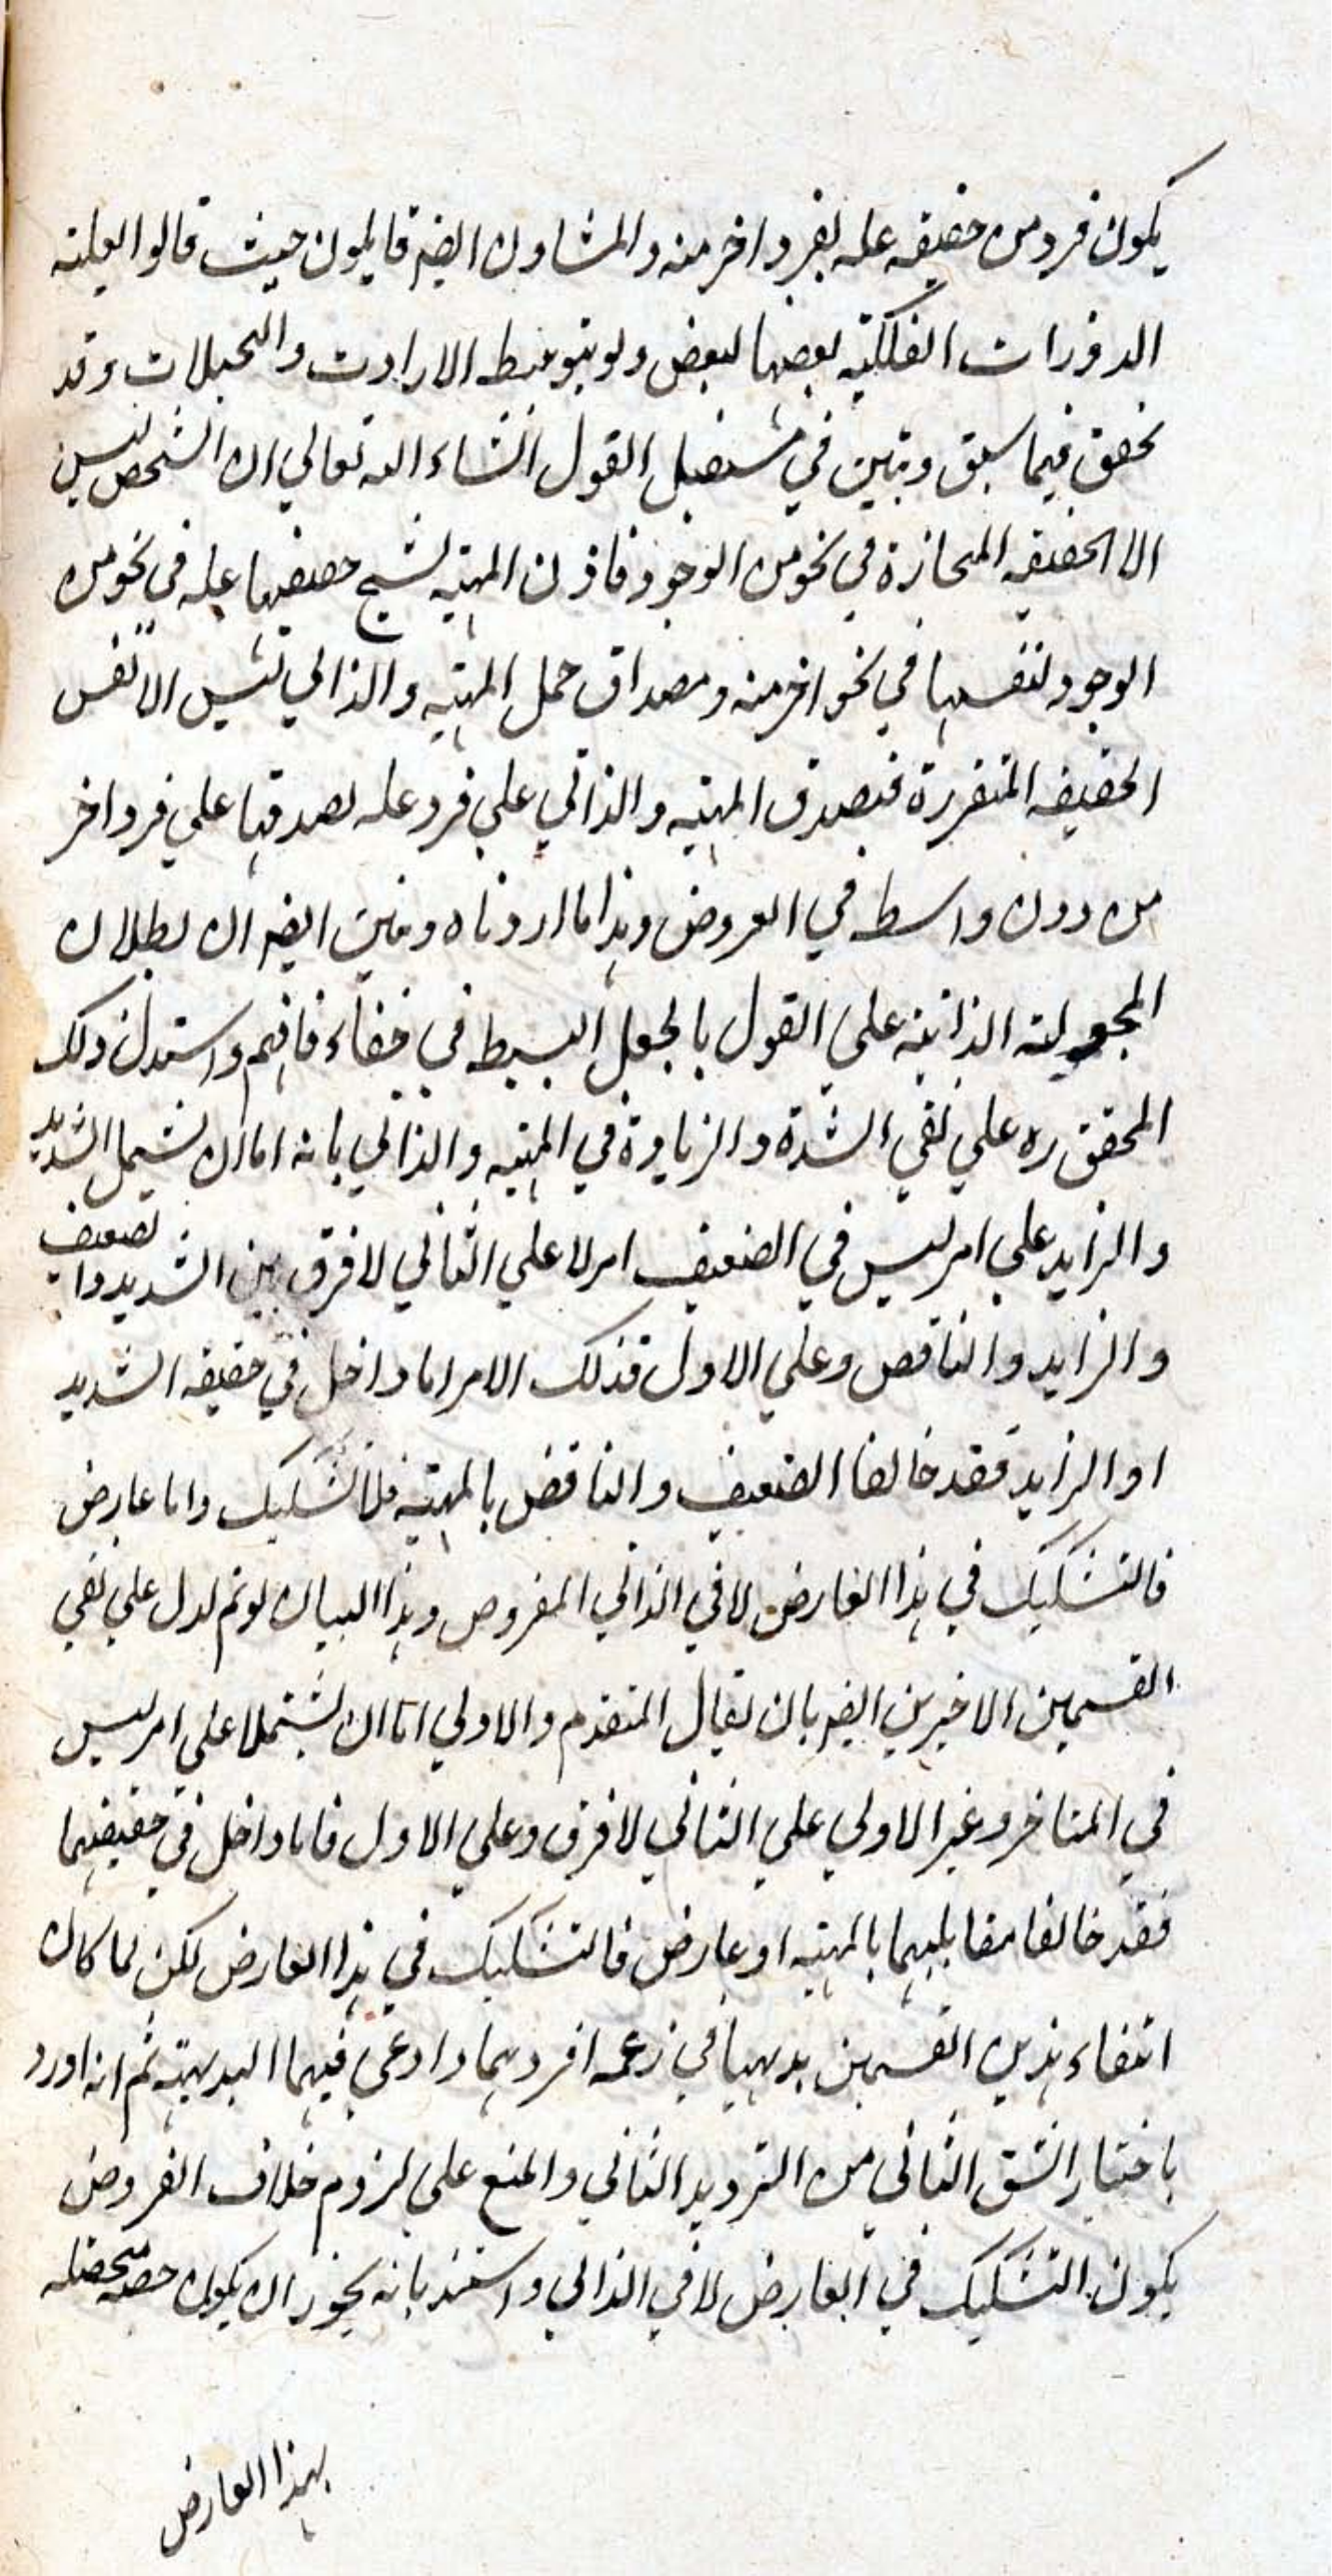 يكون فرد من حقيقه عله لفرد اخر منه والمشاون ايضه قايلون حيث قالوا بعليته
الدورات الفلكيه بعضها لبعض ولو بتوسط الارادت والتخيلات وقد
تحقق فيما سبق وتبين في مستقبل القول انشاء الله تعالي ان الشخص ليس
الا الحقيقه المنحازة في نحو من الوجود فاذن المهيه لسنح حقيقتها عله في نحو من
الوجود لنفسها في نحو اخر منه ومصداق حمل المهيه والذاتي ليس الا نفس
الحقيقه المتقررة فبصدق المهيه والذاتي علي فرد عله لصدقها علي فرد اخر
من دون واسطه في العروض وهذا ما اردناه وتبين ايضه ان بطلان
المجعوليته الذاتيه علي القول بالجعل البسيط في خفاء فافهم واستدل ذلك
المحقق ره علي نفي الشدة والزيادة في المهيه والذاتي بانه اما ان يشتمل الشديد
والزايد علي امر ليس في الضعيف ام لا علي الثاني لا فرق بين الشديد والضعيف
والزايد والناقص وعلي الاول فذلك الامر اما داخل في حقيقه الشديد
او الزايد فقد خالفا الضعيف والناقص بالمهيه فلا تشكيك واما عارض
فالتشكيك في هذا العارض لا في الذاتي المفروض وهذا البيان لو تم لدل علي نفي
القسمين الاخيرين ايضه بان يقال المتقدم والاولي اما ان يشتملا علي امر ليس
في المتاخر وغير الاولي علي الثاني لا فرق وعلي الاول فاما داخل في حقيقتهما
فقد خالفا مقابليهما بالمهيه او عارض فالتشكيك في هذا العارض لكن لما كان
انتفاء هذين القسمين بديهيا في زعمه افردهما وادعي فيهما البديهيه ثم انه اورد
باختيار الشق الثاني من الترديد الثاني والمنع علي لزوم خلاف الفروض
يكون التشكيك في العارض لا في الذاتي واستند بانه يجوز ان يكون حصه متحصله
بهذا العارض